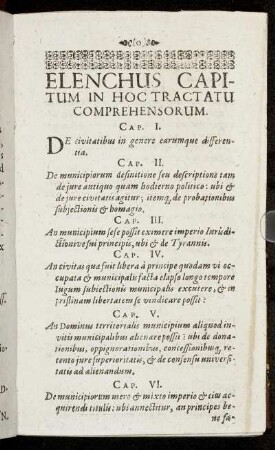 ELENCHUS CAPI-
TUM IN HOC TRACTATU
COMPREHENSORUM.
CAP. I.
DE civitatibus in genere earumque differen-
tia.
CAP. II.
De municipiorum definitione seu descriptione tam
de jure antiquo quam hodierno politico: ubi &
de jure civitatis agitur; itemq, de probationibus
subjectionis & homagio.
CAP. III.
An municipium sese possit eximere imperio Juris-
dictioni vesui principis, ubi & de Tyrannis.
CAP. IV.
An civitas quæ fuit libera à principe quodam vi oc-
cupata & municipalis facta elapso longo tempore
Iugum subiectionis municipalis excutere, & in
pristinam libertatem se vindicare possit:
CAP. V.
An Dominus territorialis municipium aliquod in-
vitis municipalibus alienare possit: ubi de dona-
tionibus, oppignorationibus, concessionibusq, re-
tento jure superioritatis, & de consensu universi-
tatis ad alienandum.
CAP. VI.
De municipiorum mero & mixto imperio & eius ac-
quirendi titulis: ubi annectitur, an principes be-
ne fa-